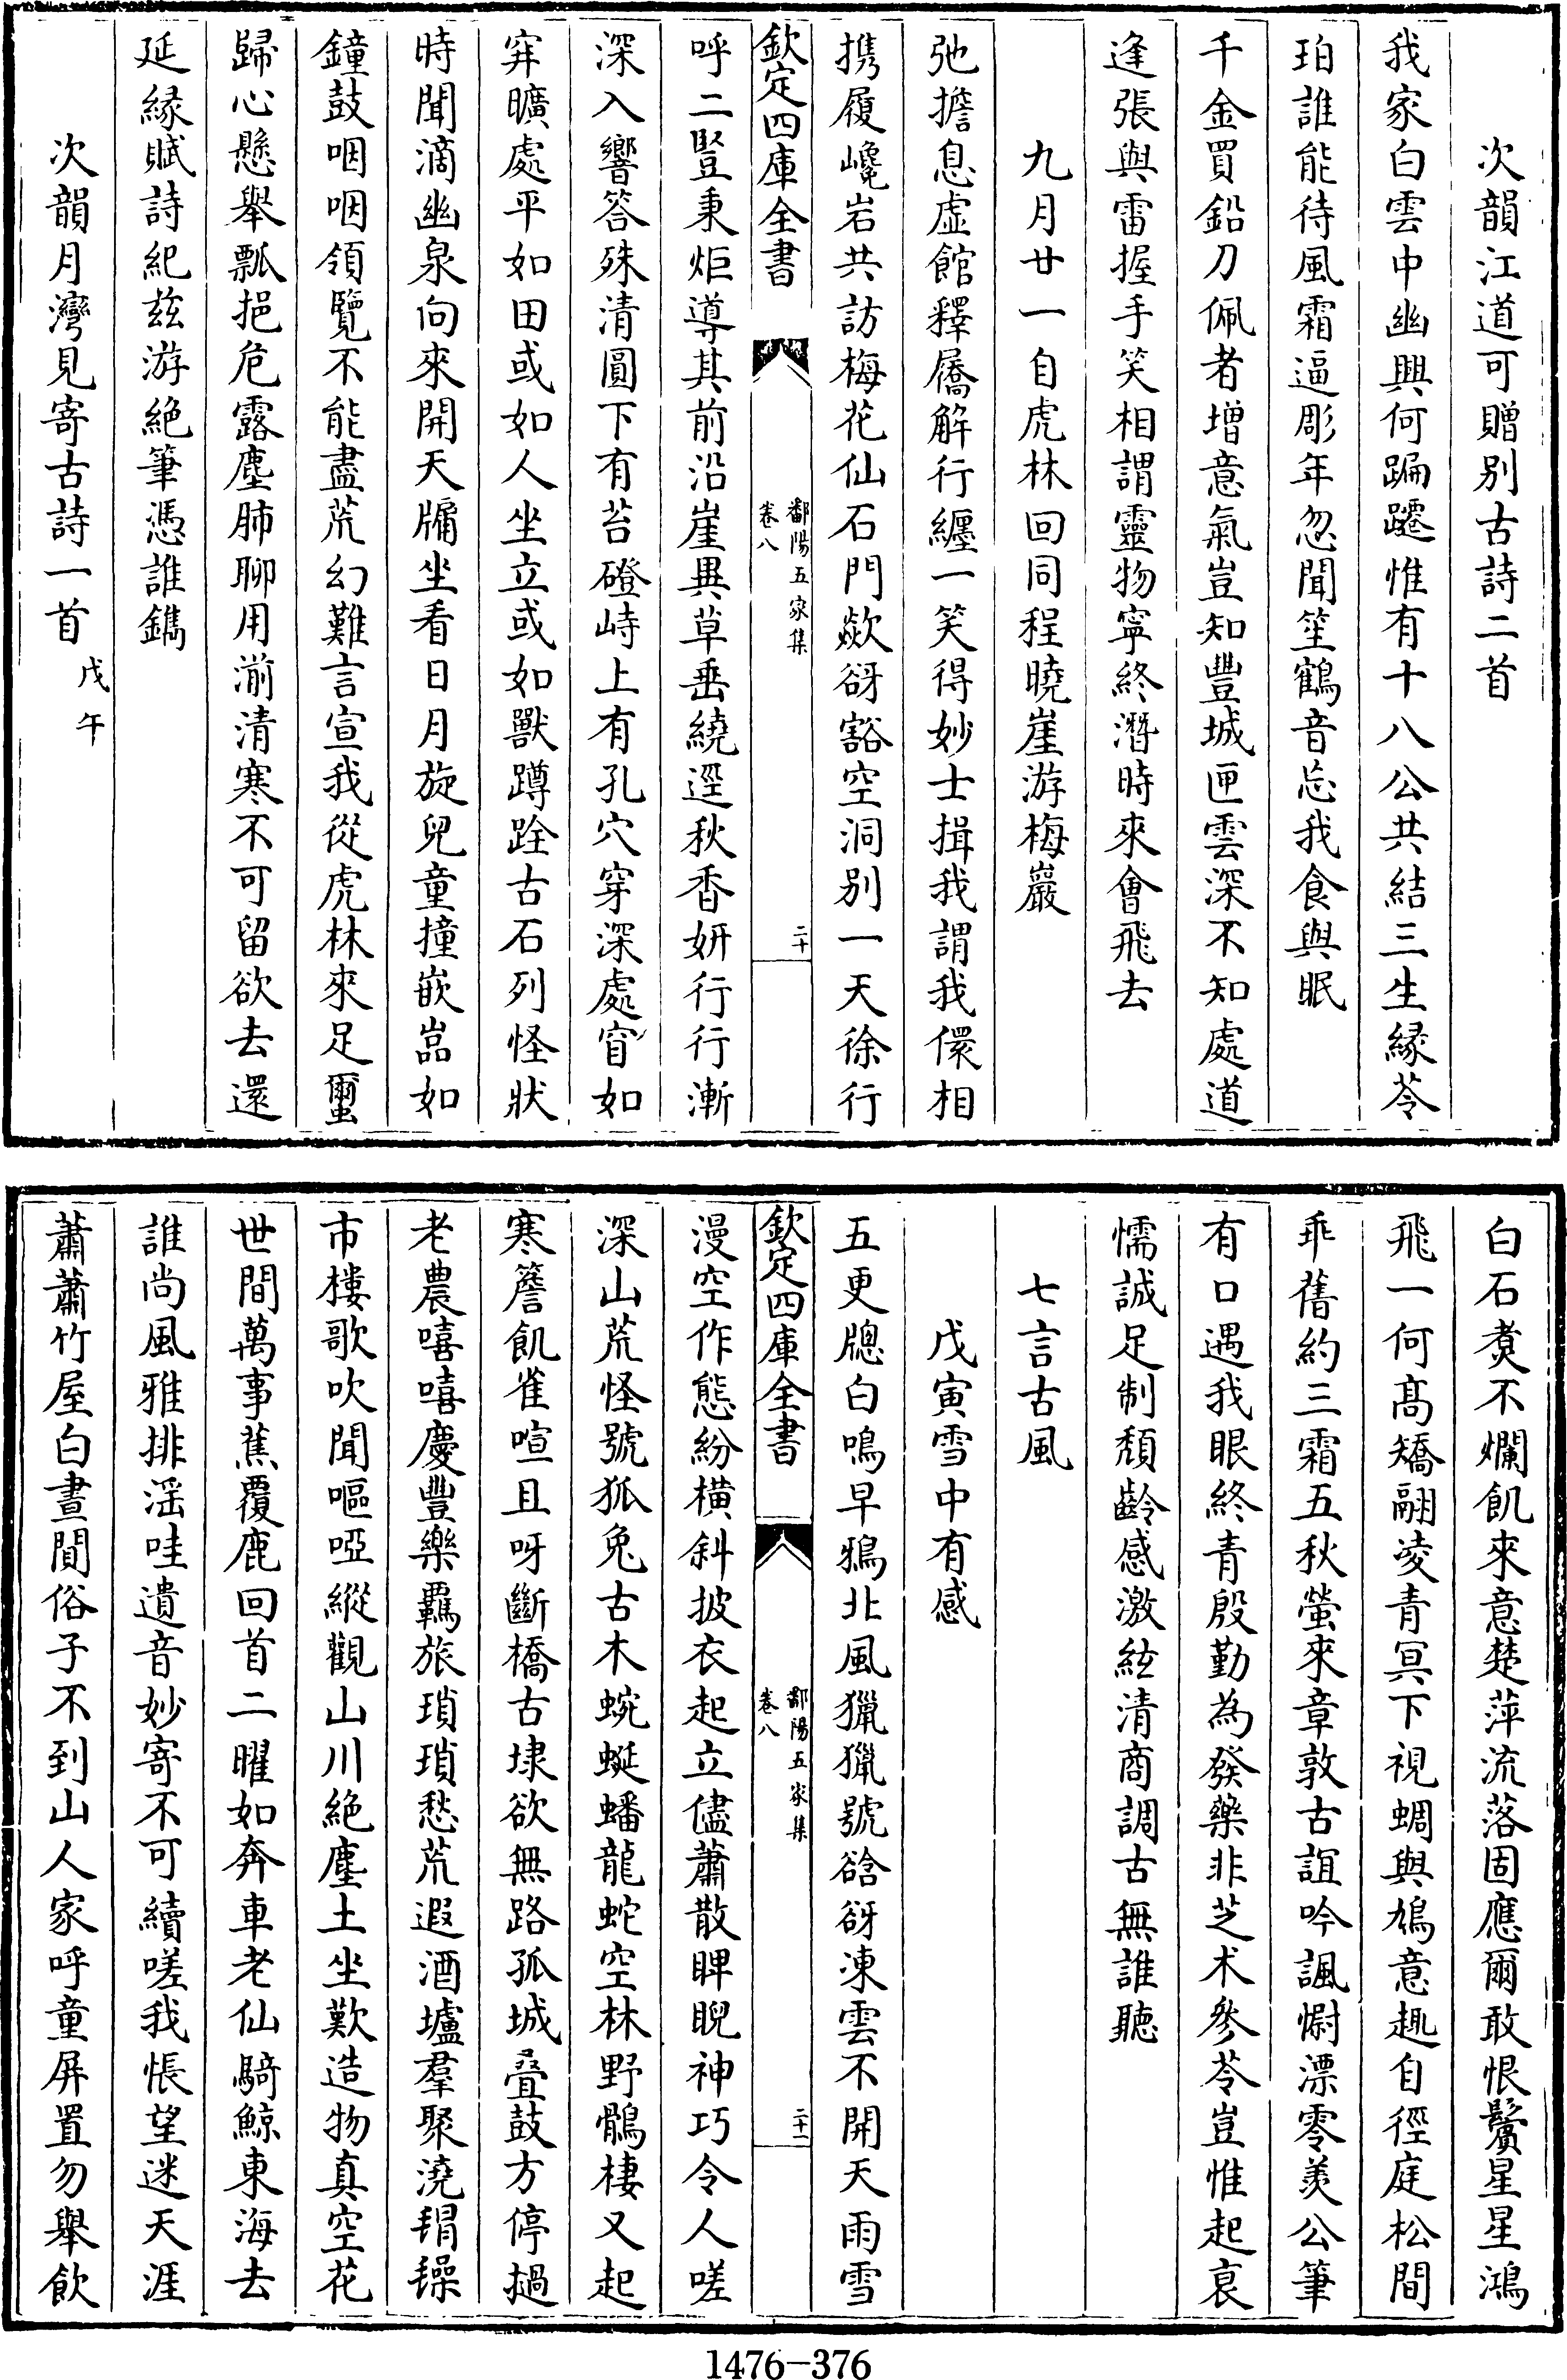 次韻江道可贈别古詩二首
我家白雲中幽興何蹁躚惟有十八公共結三生緣苓
珀誰能待風霜逼彫年忽聞笙鶴音忘我食與眠
千金買鉛刀佩者增意氣豈知豐城匣雲深不知處道
逢張與雷握手笑相謂靈物寧終潛時來會飛去
九月廿一自虎林回同程曉崖游梅巖
弛擔息虛館釋屩解行纏一笑得妙士揖我謂我儇相
携履巉岩共訪梅花仙石門歘谺豁空洞别一天徐行
欽定四庫全書
鄱陽五家集
卷八
二十
呼二豎秉炬導其前沿崖異草垂繞逕秋香妍行行漸
深入響答殊清圓下有苔磴峙上有孔穴穿深處窅如
穽曠處平如田或如人坐立或如獸蹲跧古石列怪狀
時聞滴幽泉向來開天牖坐看日月旋兒童撞嵌嵓如
鐘鼓咽咽領覽不能盡荒幻難言宣我從虎林來足蠒
歸心懸舉瓢挹危露塵肺聊用湔清寒不可留欲去還
延緣賦詩紀兹游絶筆憑誰鐫
次韻月灣見寄古詩一首戊午
白石煑不爛飢來意楚萍流落固應爾敢恨鬢星星鴻
飛一何髙矯翮凌青冥下視蜩與鳩意趣自徑庭松間
乖舊約三霜五秋螢來章敦古誼吟諷慰漂零羨公筆
有口遇我眼終青殷勤為發藥非芝术參苓豈惟起衰
懦誠足制頹齡感激絃清商調古無誰聽
七言古風
戊寅雪中有感
五更牕白鳴早鴉北風獵獵號谽谺凍雲不開天雨雪
欽定四庫全書
鄱陽五家集
卷八
二十一
漫空作態紛横斜披衣起立儘蕭散睥睨神巧令人嗟
深山荒怪號狐兔古木蜿蜒蟠龍蛇空林野鶻棲又起
寒簷飢雀喧且呀斷橋古埭欲無路孤城疊鼓方停撾
老農嘻嘻慶豐樂羈旅瑣瑣愁荒遐酒壚羣聚澆䎃䎃
市樓歌吹聞嘔啞縱觀山川絶塵土坐歎造物真空花
世間萬事蕉覆鹿回首二曜如奔車老仙騎鯨東海去
誰尚風雅排滛哇遺音妙寄不可續嗟我悵望迷天涯
蕭蕭竹屋白晝間俗子不到山人家呼童屏置勿舉飲
1476-376